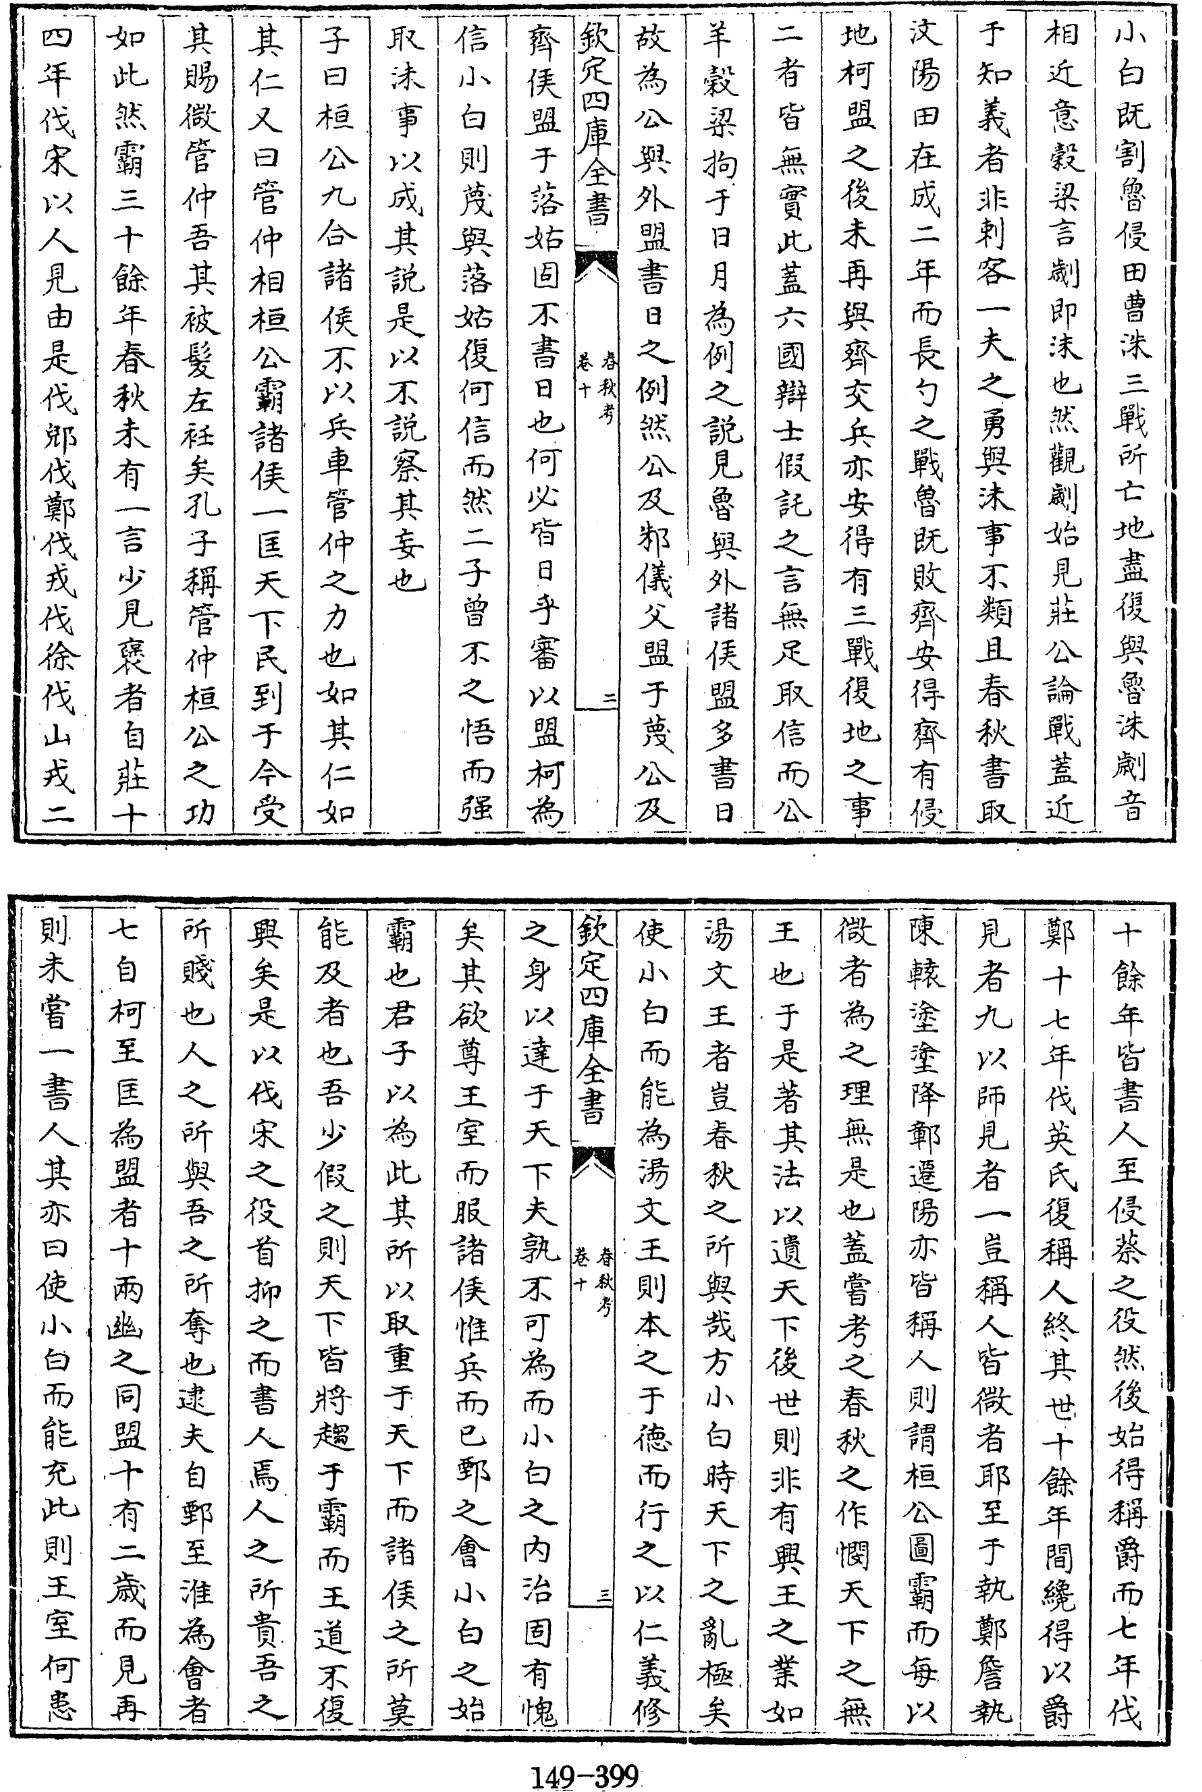 小白既割魯侵田曹洙三戰所亡地盡復與魯洙劌音
相近意穀梁言劌即沫也然觀劌始見莊公論戰蓋近
于知義者非刺客一夫之勇與沫事不類且春秋書取
汶陽田在成二年而長勺之戰魯既敗齊安得齊有侵
地柯盟之後未再與齊交兵亦安得有三戰復地之事
二者皆無實此蓋六國辯士假託之言無足取信而公
羊穀梁拘于日月為例之說見魯與外諸侯盟多書日
故為公與外盟書日之例然公及邾儀父盟于蔑公及
欽定四庫全書
春秋考
卷十
二
齊侯盟于落姑固不書日也何必皆日乎審以盟柯為
信小白則蔑與落姑復何信而然二子曾不之悟而强
取沫事以成其說是以不說察其妄也
子曰桓公九合諸侯不以兵車管仲之力也如其仁如
其仁又曰管仲相桓公霸諸侯一匡天下民到于今受
其賜微管仲吾其被髮左衽矣孔子稱管仲桓公之功
如此然霸三十餘年春秋未有一言少見褒者自莊十
四年伐宋以人見由是伐郳伐鄭伐戎伐徐伐山戎二
十餘年皆書人至侵蔡之役然後始得稱爵而七年伐
鄭十七年伐英氏復稱人終其世十餘年間纔得以爵
見者九以師見者一豈稱人皆微者耶至于執鄭詹執
陳轅濤塗降鄣遷陽亦皆稱人則謂桓公圖霸而每以
微者為之理無是也蓋嘗考之春秋之作憫天下之無
王也于是著其法以遺天下後世則非有興王之業如
湯文王者豈春秋之所與哉方小白時天下之亂極矣
使小白而能為湯文王則本之于德而行之以仁義修
欽定四庫全書
春秋考
卷十
三
之身以達于天下夫孰不可為而小白之内治固有愧
矣其欲尊王室而服諸侯惟兵而已鄄之會小白之始
霸也君子以為此其所以取重于天下而諸侯之所莫
能及者也吾少假之則天下皆將趨于霸而王道不復
興矣是以伐宋之役首抑之而書人焉人之所貴吾之
所賤也人之所與吾之所奪也逮夫自鄄至淮為會者
七自柯至匡為盟者十兩幽之同盟十有二歲而見再
則未嘗一書人其亦曰使小白而能充此則王室何患
149-399